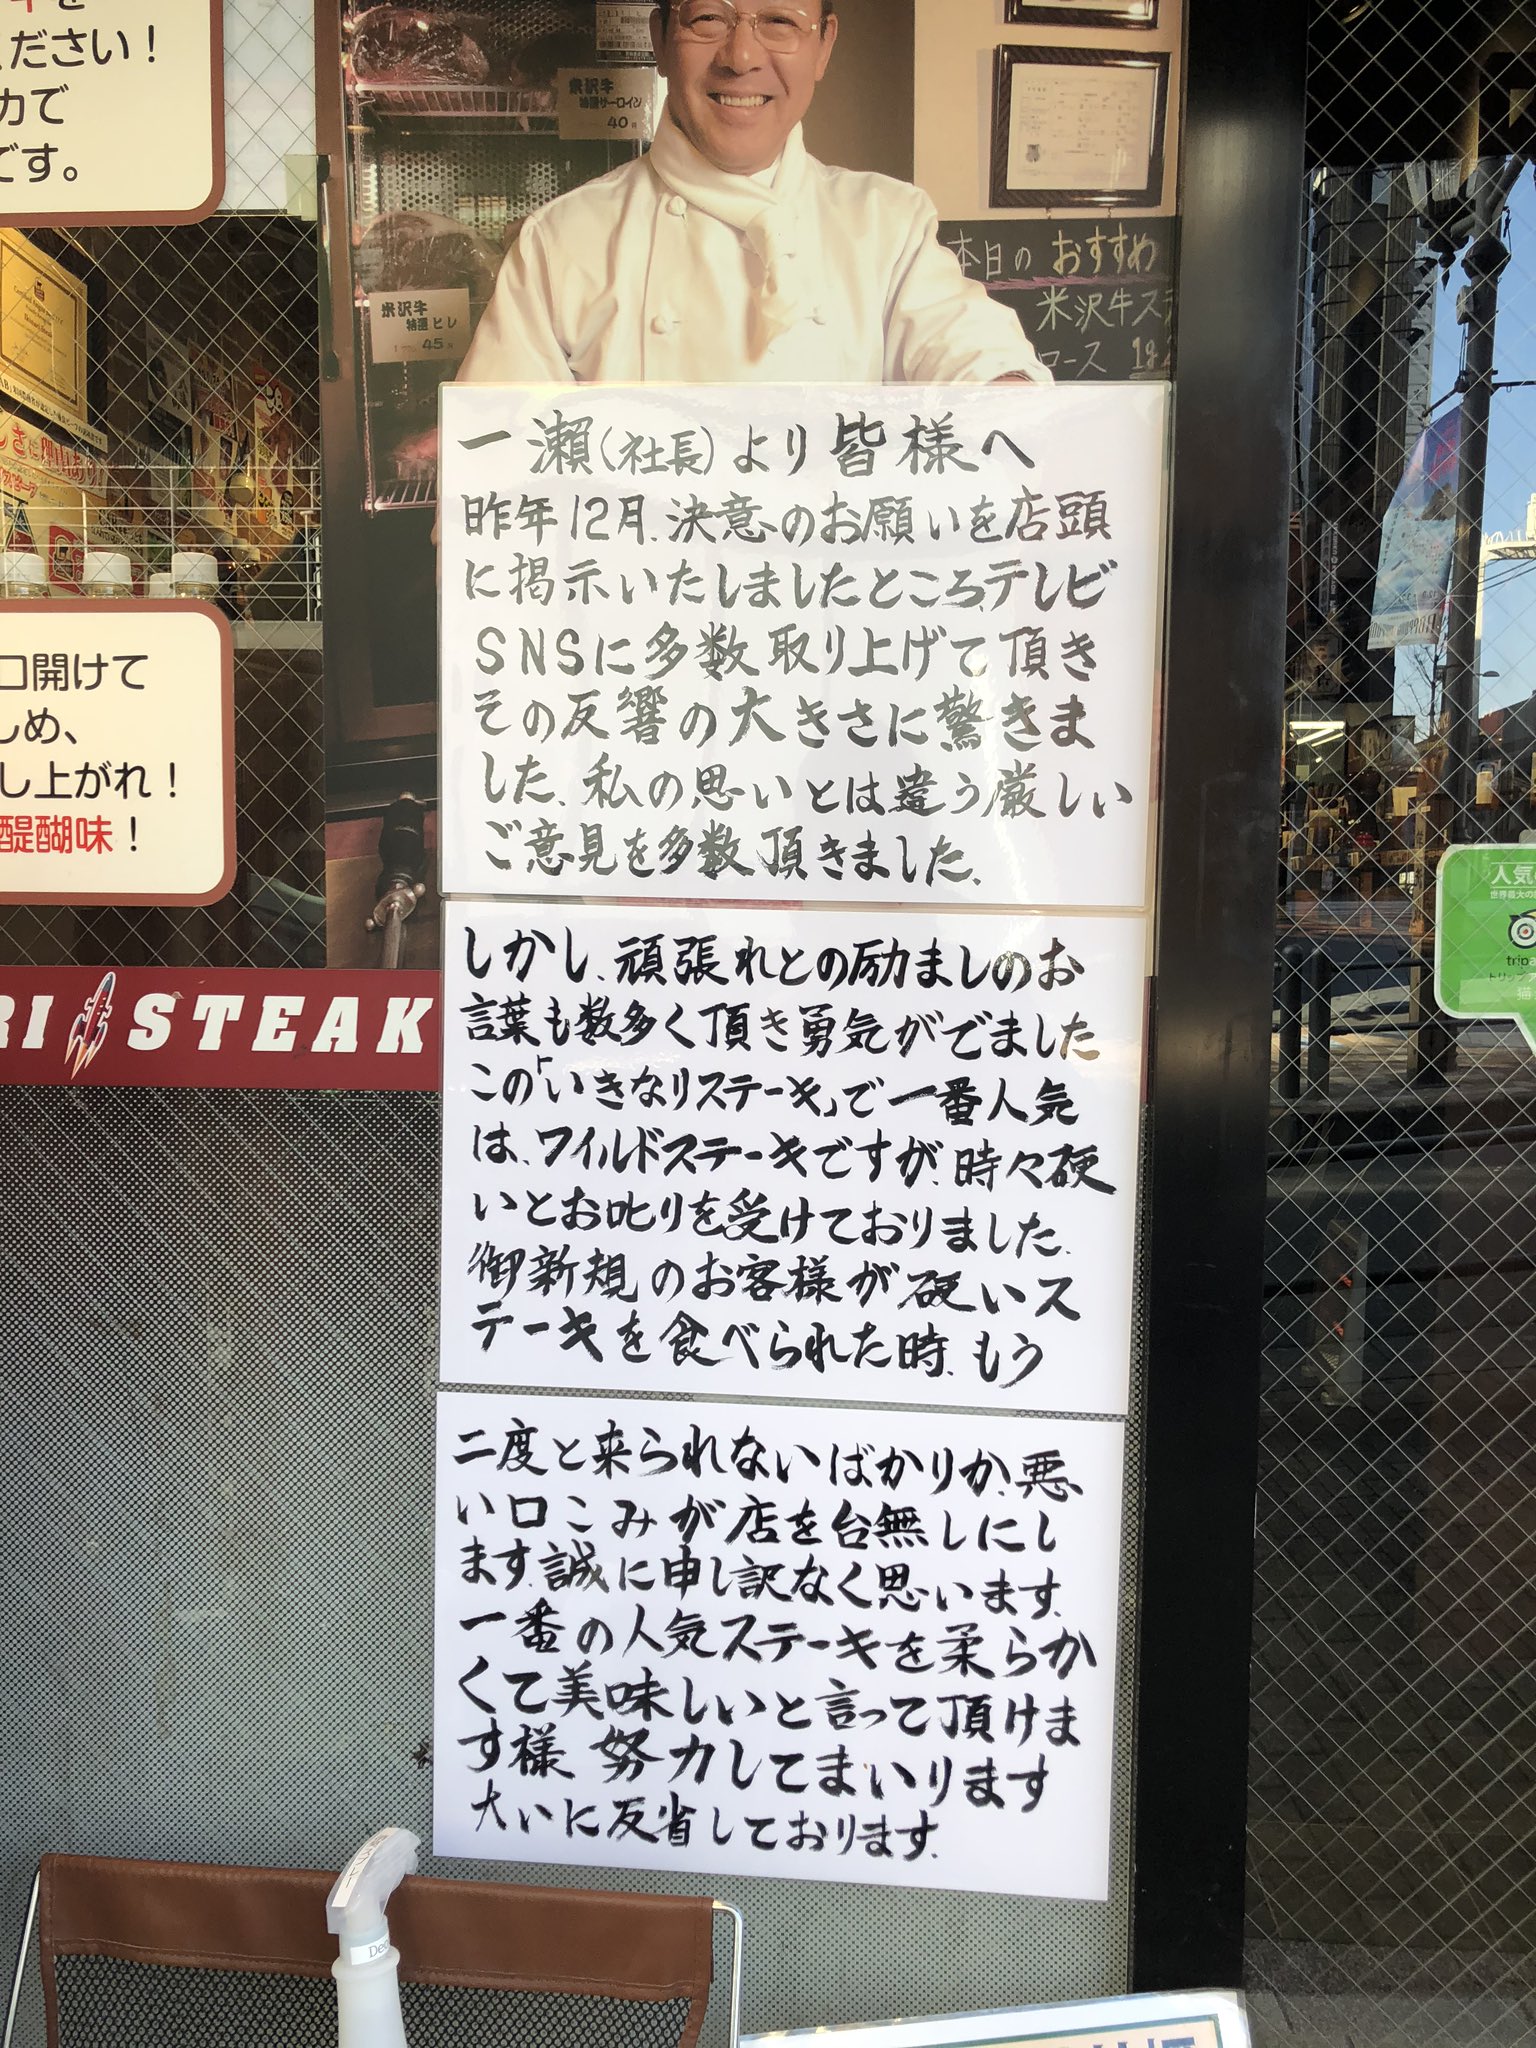 ください！
です。
米沢牛
特選サーロイン
40
米沢牛
特選ヒレ
45
本日のおすすめ
米沢牛ステ
ロース
口開けて
しめ、
し上がれ！
醍醐味！
RI STEAK
一瀬(社長)より皆様へ
昨年12月、決意のお願いを店頭
に掲示いたしましたところ、テレビ
SNSに多数取り上げて頂き
その反響の大きさに驚きま
した、私の思いとは違う厳しい
ご意見を多数頂きました、
しかし、頑張れとの励ましのお
言葉も数多く頂き勇気がでました
この「いきなりステーキ」で一番人気
は、ワイルドステーキですが、時々硬
いとお叱りを受けておりました、
御新規のお客様が硬いス
テーキを食べられた時、もう
二度と来られないばかりか、悪
い口こみが店を台無しにし
ます、誠に申し訳なく思います、
一番の人気ステーキを柔らか
くて美味しいと言って頂けま
す様 努力してまいります
大いに反省しております、
人気
世界最大の
trip
トリップ